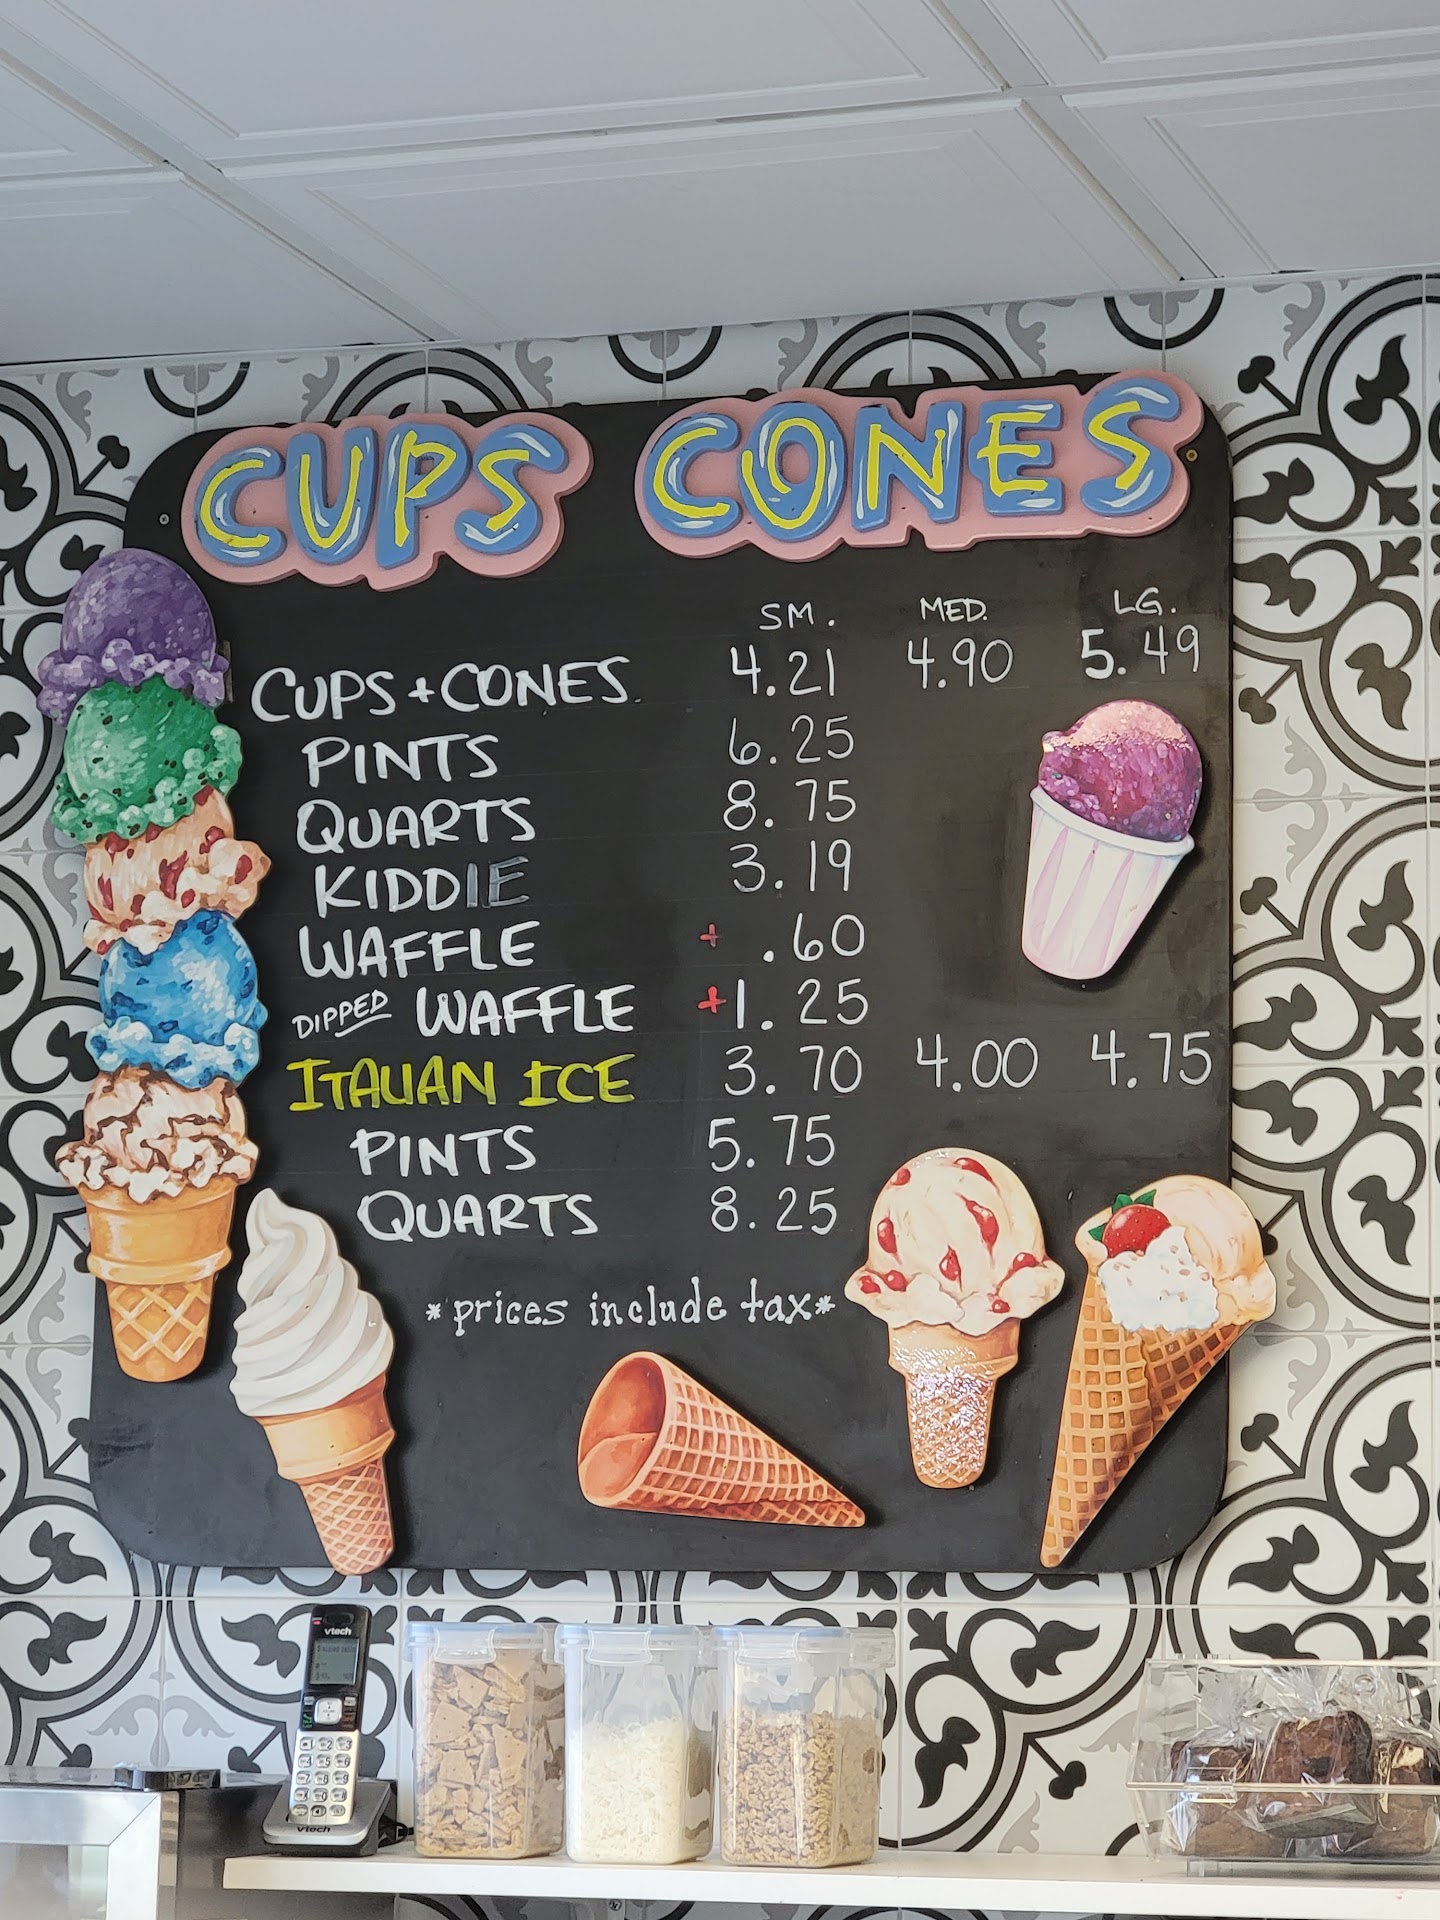 CUPS CONES
SM. MED. LG.
CUPS + CONES 4.21 4.90 5.49
PINTS 6.25
QUARTS 8.75
KIDDIE 3.19
WAFFLE + .60
DIPPED WAFFLE +1.25
ITALIAN ICE 3.70 4.00 4.75
PINTS 5.75
QUARTS 8.25
*prices include tax*
vtech
vtech